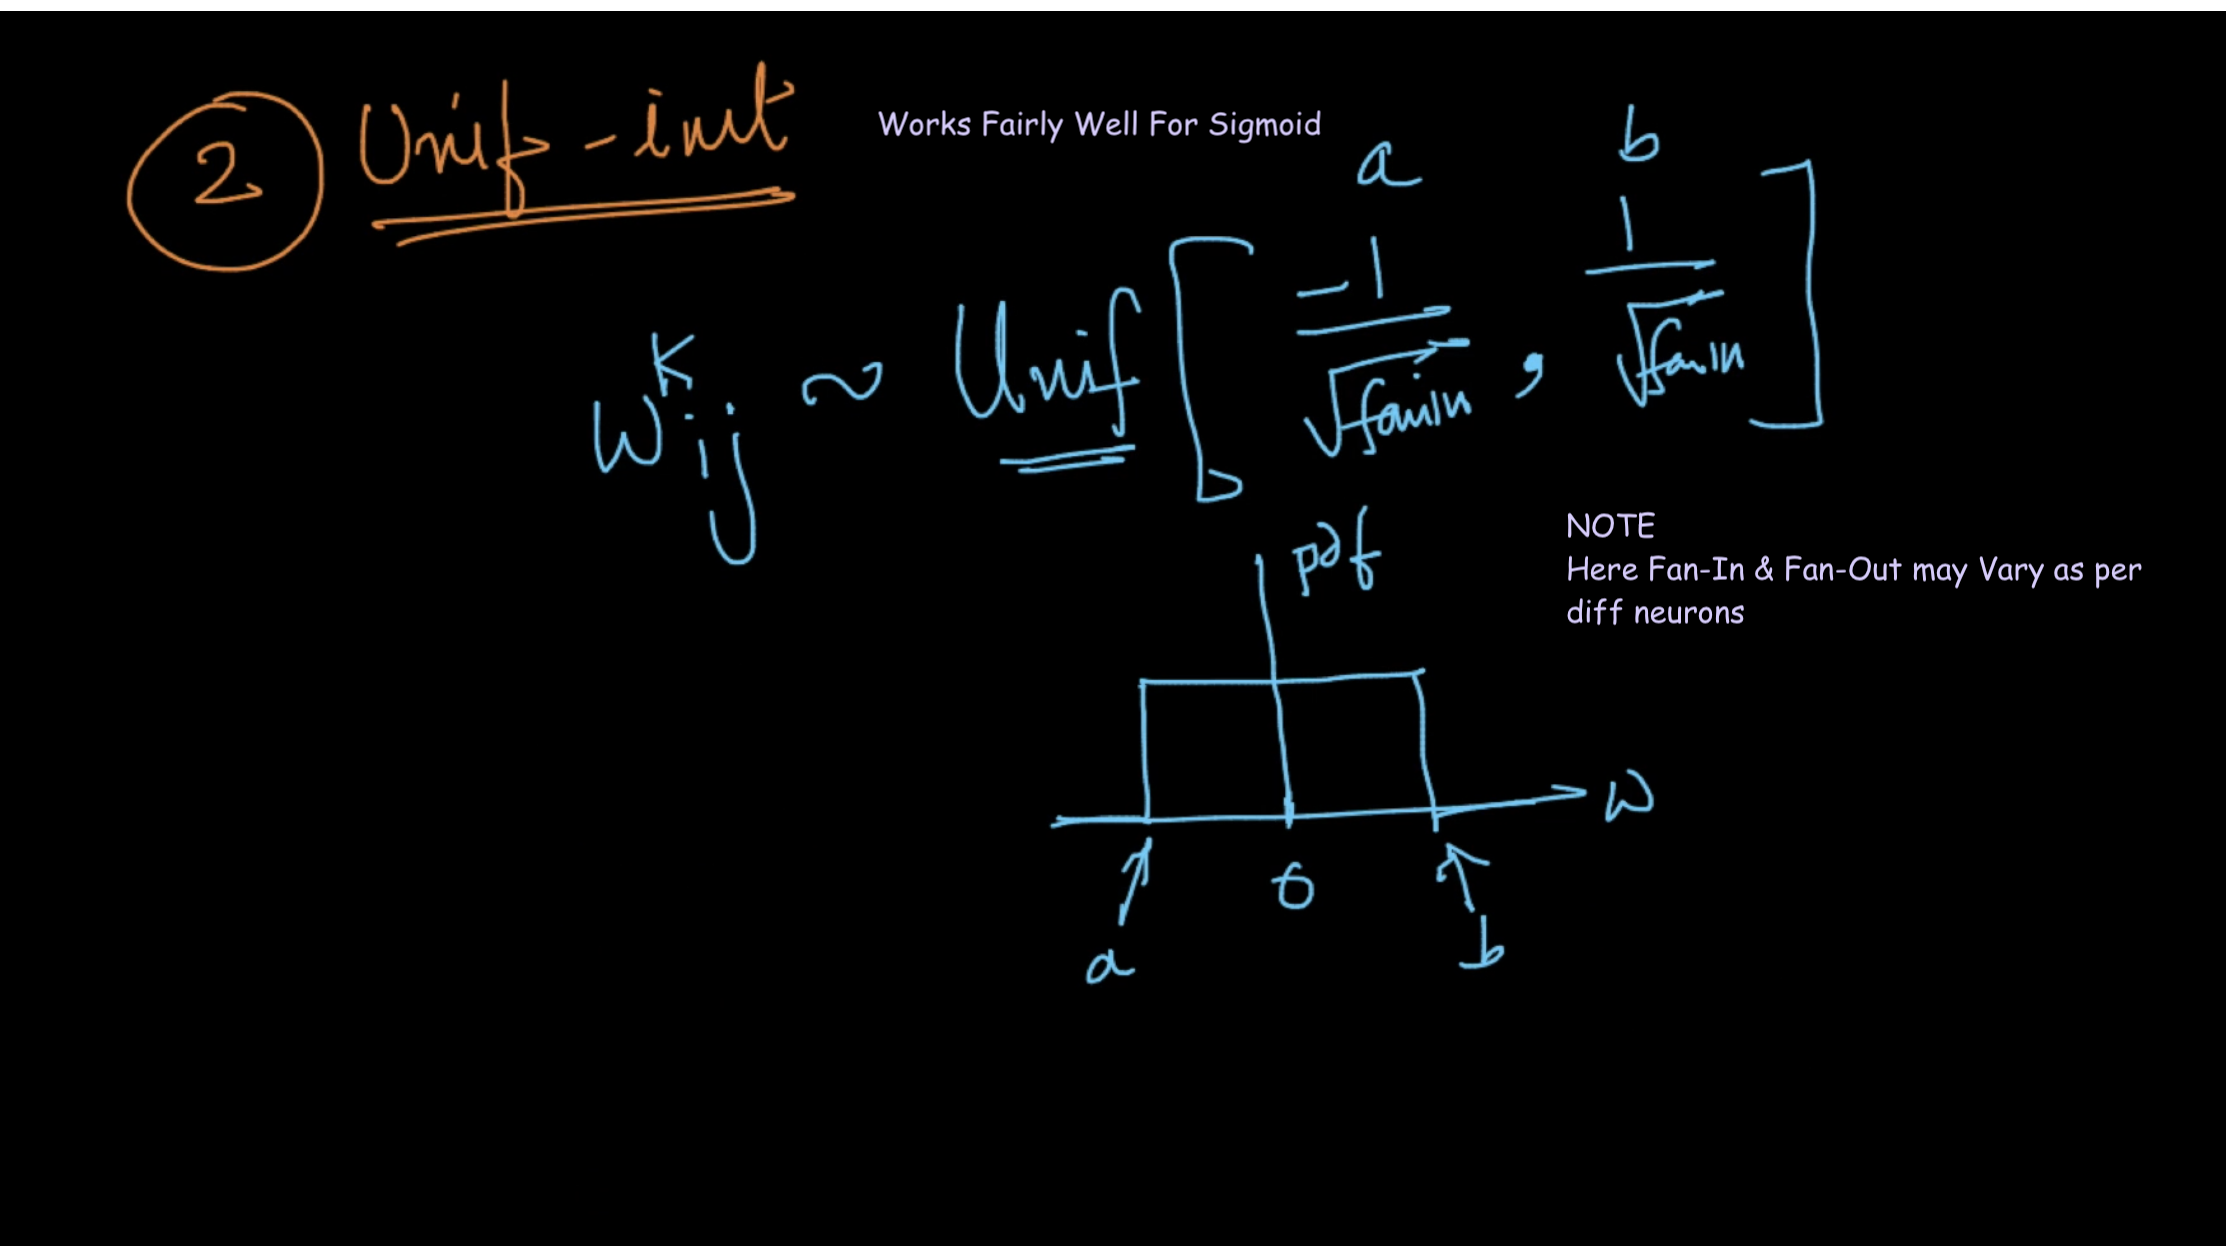 2 Unif-init
Works Fairly Well For Sigmoid
a b
W^k_ij ~ Unif [ -1/√fanin , 1/√fanin ]
NOTE
Here Fan-In & Fan-Out may Vary as per
diff neurons
pdf
W
a 0 b